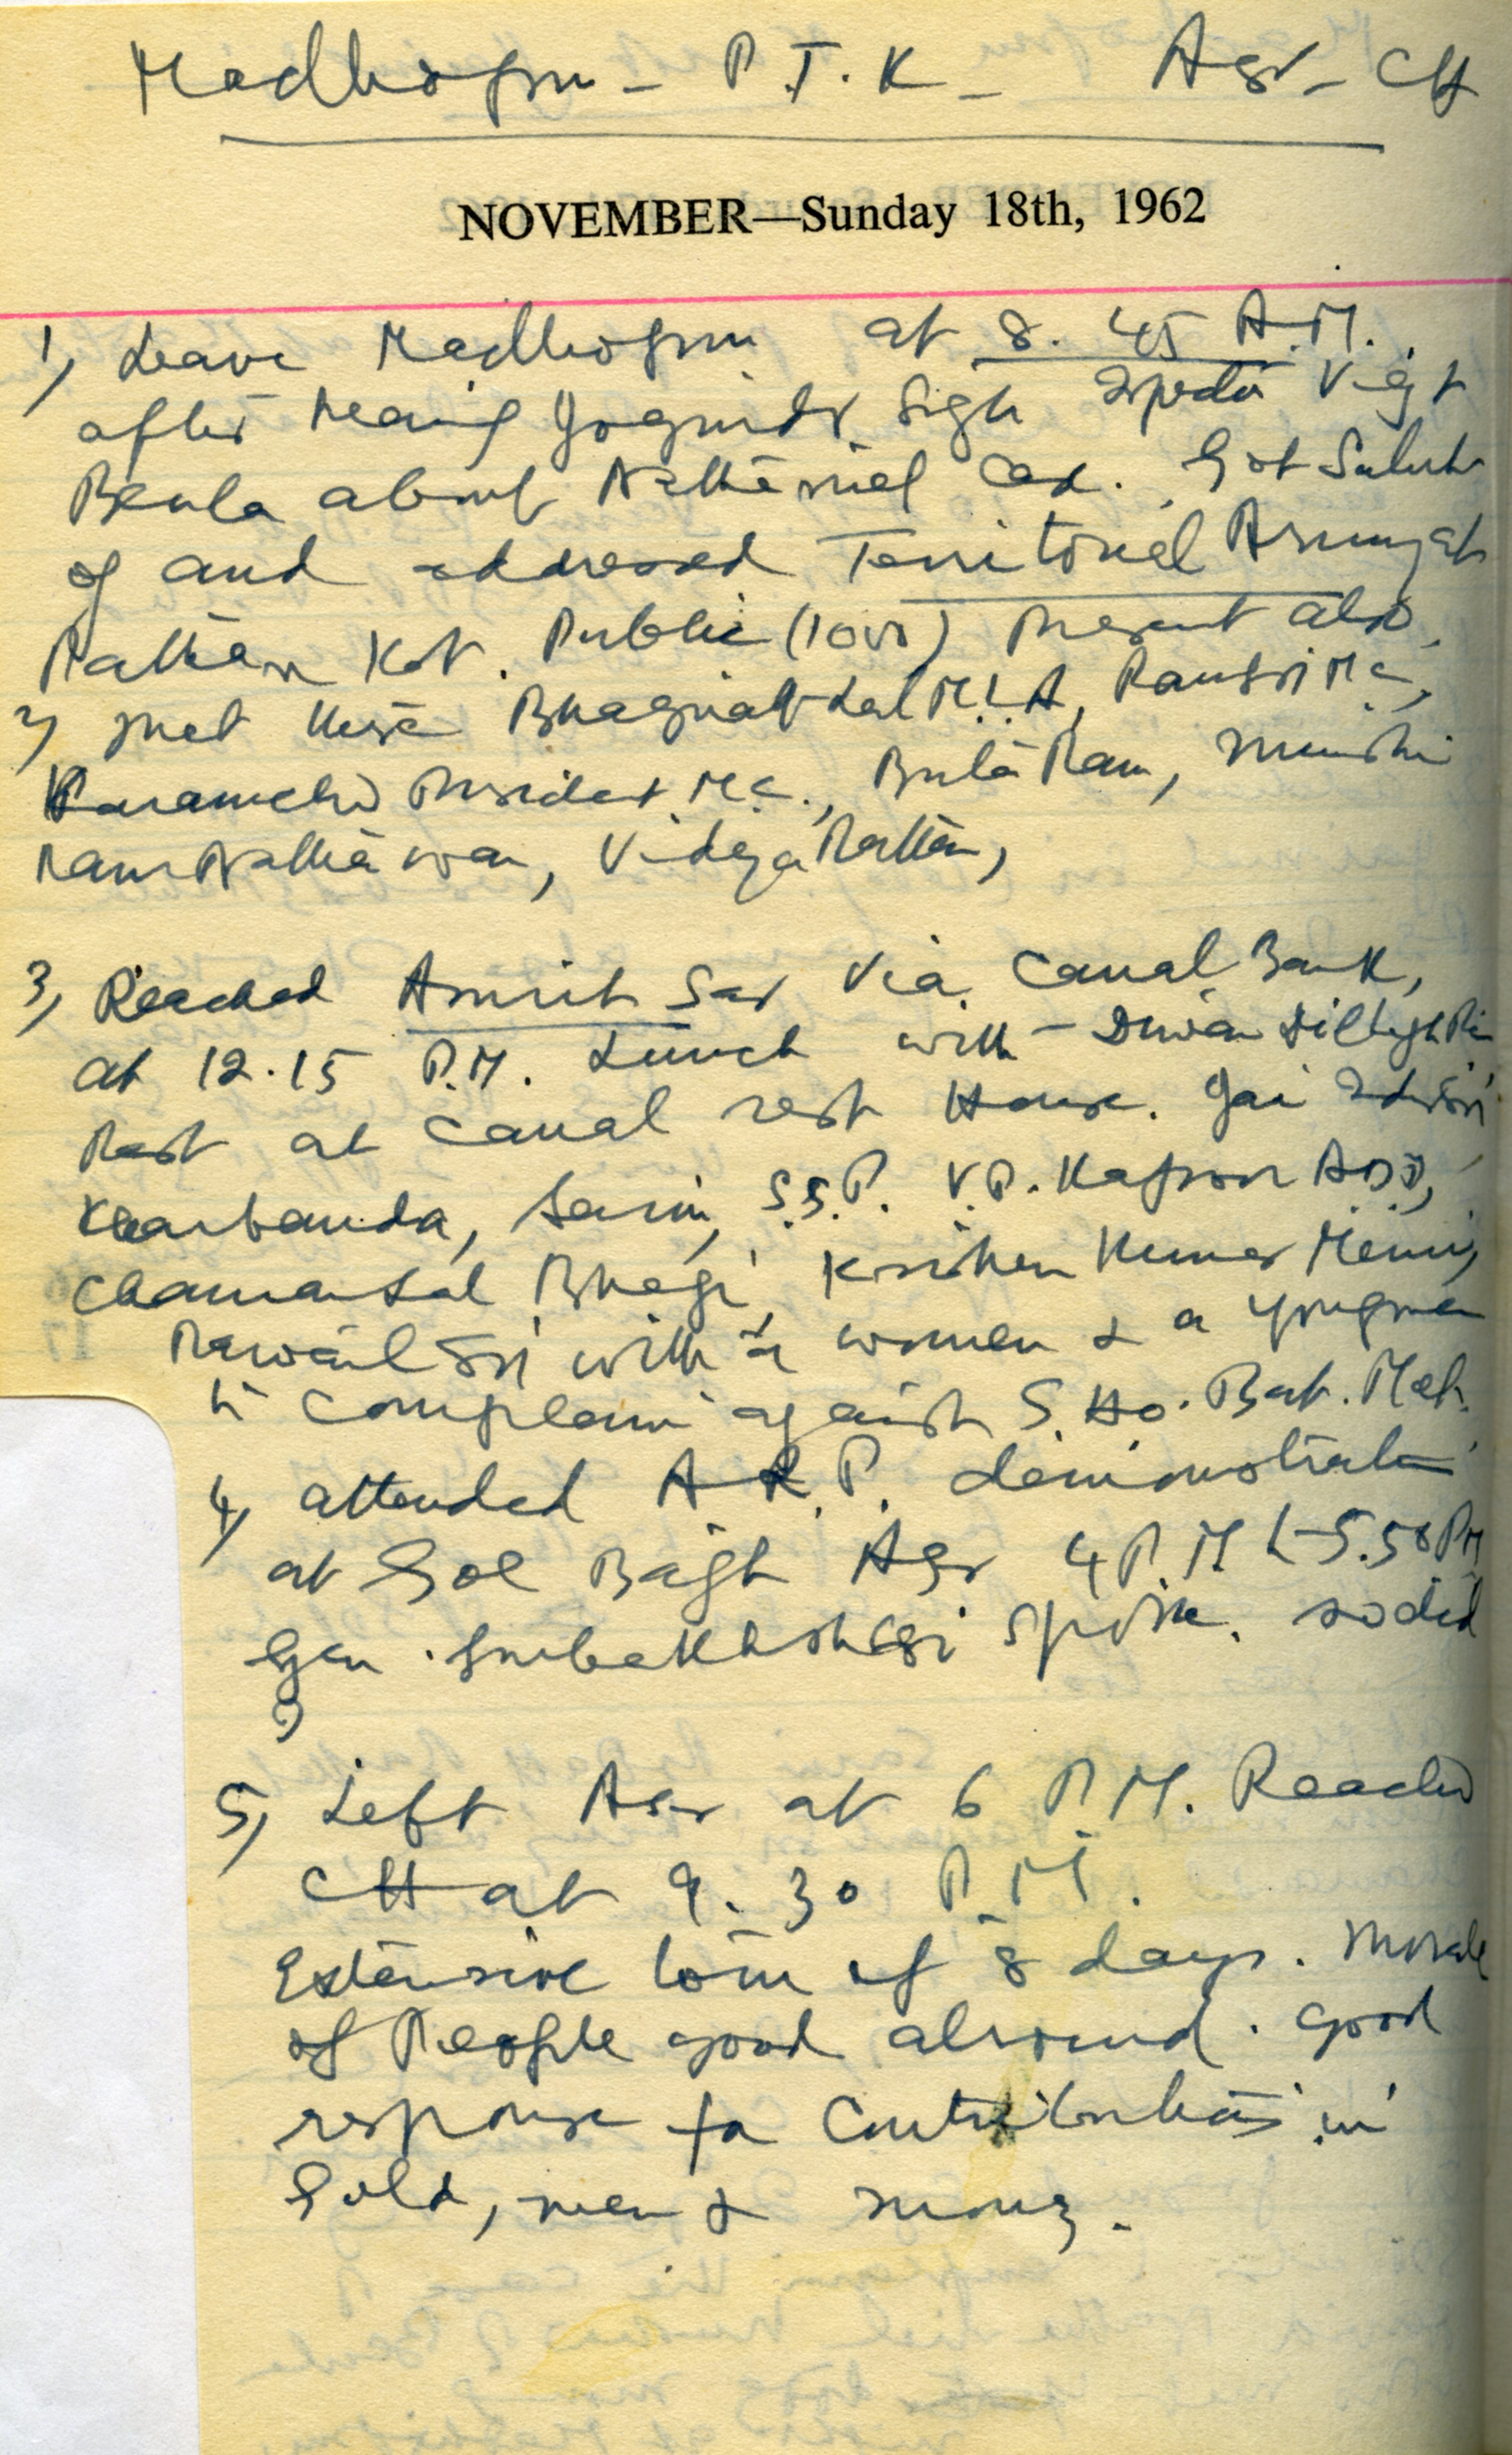 Madhopur - P.T.K - Asr - CH
NOVEMBER—Sunday 18th, 1962
1) Leave Madhopur at 8.45 A.M.
after Jogindr Sigh
about case. Got Salute
of and addressed Territorial Army at
Pathan Kot. Public (1000) Present also.
2) met there Bhagirath Lal M.L.A,
President M.C., Buta Ram, Munshi
Ram Vidya Rattan,
3) Reached Amrit Sar via Canal Bank,
at 12.15 P.M. Lunch with Diwan
Rest at Canal rest House. Jai
Kharbanda, Sarin, S.S.P. V.P. Kapoor
Chaman Lal Krishen Kumar
with a women & a
to complain against S.Ho. Bat.
4) attended A.R.P. demonstration
at Gol Bagh Asr 4 P.M. 5.50 PM
Gen. spoke. so did
I
5) Left Asr at 6 P.M. Reached
CH at 9.30 P.M.
Extensive tour of 8 days. Morale
of People good alround. Good
response for Contributions in
Gold, men & money.